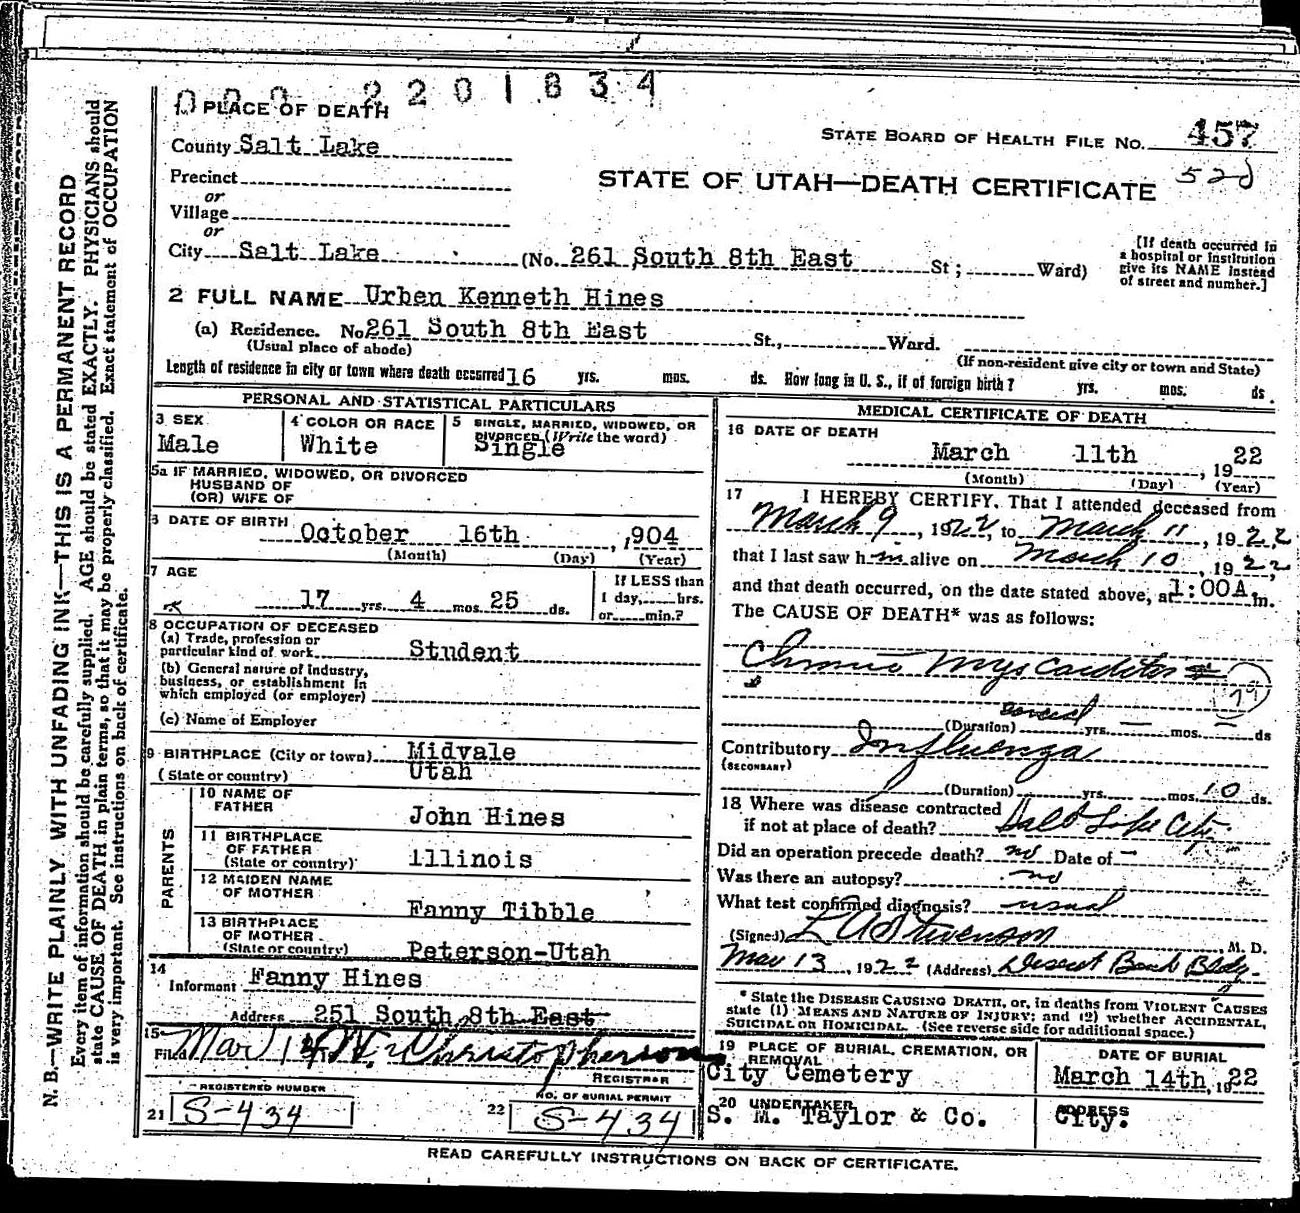 000 2201834
1 PLACE OF DEATH
STATE BOARD OF HEALTH FILE No. 457
County Salt Lake
520
STATE OF UTAH—DEATH CERTIFICATE
Precinct
or
Village
or
City Salt Lake (No. 261 South 8th East St; Ward)
[If death occurred in
a hospital or institution
give its NAME instead
of street and number.]
2 FULL NAME Urben Kenneth Hines
(a) Residence. No 261 South 8th East St., Ward.
(Usual place of abode) (If non-resident give city or town and State)
Length of residence in city or town where death occurred 16 yrs. mos. ds. How long in U. S., if of foreign birth? yrs. mos. ds.
PERSONAL AND STATISTICAL PARTICULARS
3 SEX 4 COLOR OR RACE 5 SINGLE, MARRIED, WIDOWED, OR
DIVORCED (Write the word)
Male White Single
5a IF MARRIED, WIDOWED, OR DIVORCED
HUSBAND OF
(OR) WIFE OF
6 DATE OF BIRTH October 16th , 1904
(Month) (Day) (Year)
7 AGE
17 yrs. 4 mos. 25 ds.
If LESS than
1 day, hrs.
or min.?
8 OCCUPATION OF DECEASED
(a) Trade, profession or
particular kind of work Student
(b) General nature of industry,
business, or establishment in
which employed (or employer)
(c) Name of Employer
9 BIRTHPLACE (City or town) Midvale
(State or country) Utah
PARENTS
10 NAME OF
FATHER John Hines
11 BIRTHPLACE
OF FATHER
(State or country) Illinois
12 MAIDEN NAME
OF MOTHER Fanny Tibble
13 BIRTHPLACE
OF MOTHER
(State or country) Peterson-Utah
14
Informant Fanny Hines
Address 251 South 8th East
15
Filed Mar 14 Christopherson
REGISTRAR
REGISTERED NUMBER
21 S-434
NO. OF BURIAL PERMIT
22 S-434
MEDICAL CERTIFICATE OF DEATH
16 DATE OF DEATH
March 11th , 1922
(Month) (Day) (Year)
17 I HEREBY CERTIFY, That I attended deceased from
March 9, 1922, to March 11, 1922
that I last saw him alive on March 10, 1922,
and that death occurred, on the date stated above, at 1:00A.m.
The CAUSE OF DEATH* was as follows:
Chronic Myocarditis
79
(Duration) several yrs. — mos. — ds
Contributory Influenza
(SECONDARY)
(Duration) yrs. mos. 10 ds.
18 Where was disease contracted
if not at place of death? Salt Lake City
Did an operation precede death? no Date of —
Was there an autopsy? no
What test confirmed diagnosis? usual
(Signed) L A Stevenson M. D.
Mar 13, 1922 (Address) Deseret Bank Bldg.
* State the DISEASE CAUSING DEATH, or, in deaths from VIOLENT CAUSES
state (1) MEANS AND NATURE OF INJURY; and (2) whether ACCIDENTAL,
SUICIDAL OR HOMICIDAL. (See reverse side for additional space.)
19 PLACE OF BURIAL, CREMATION, OR
REMOVAL
City Cemetery
DATE OF BURIAL
March 14th, 1922
20 UNDERTAKER
S. M. Taylor & Co.
ADDRESS
City.
READ CAREFULLY INSTRUCTIONS ON BACK OF CERTIFICATE.
N. B.—WRITE PLAINLY WITH UNFADING INK—THIS IS A PERMANENT RECORD
Every item of information should be carefully supplied. AGE should be stated EXACTLY. PHYSICIANS should
state CAUSE OF DEATH in plain terms, so that it may be properly classified. Exact statement of OCCUPATION
is very important. See instructions on back of certificate.